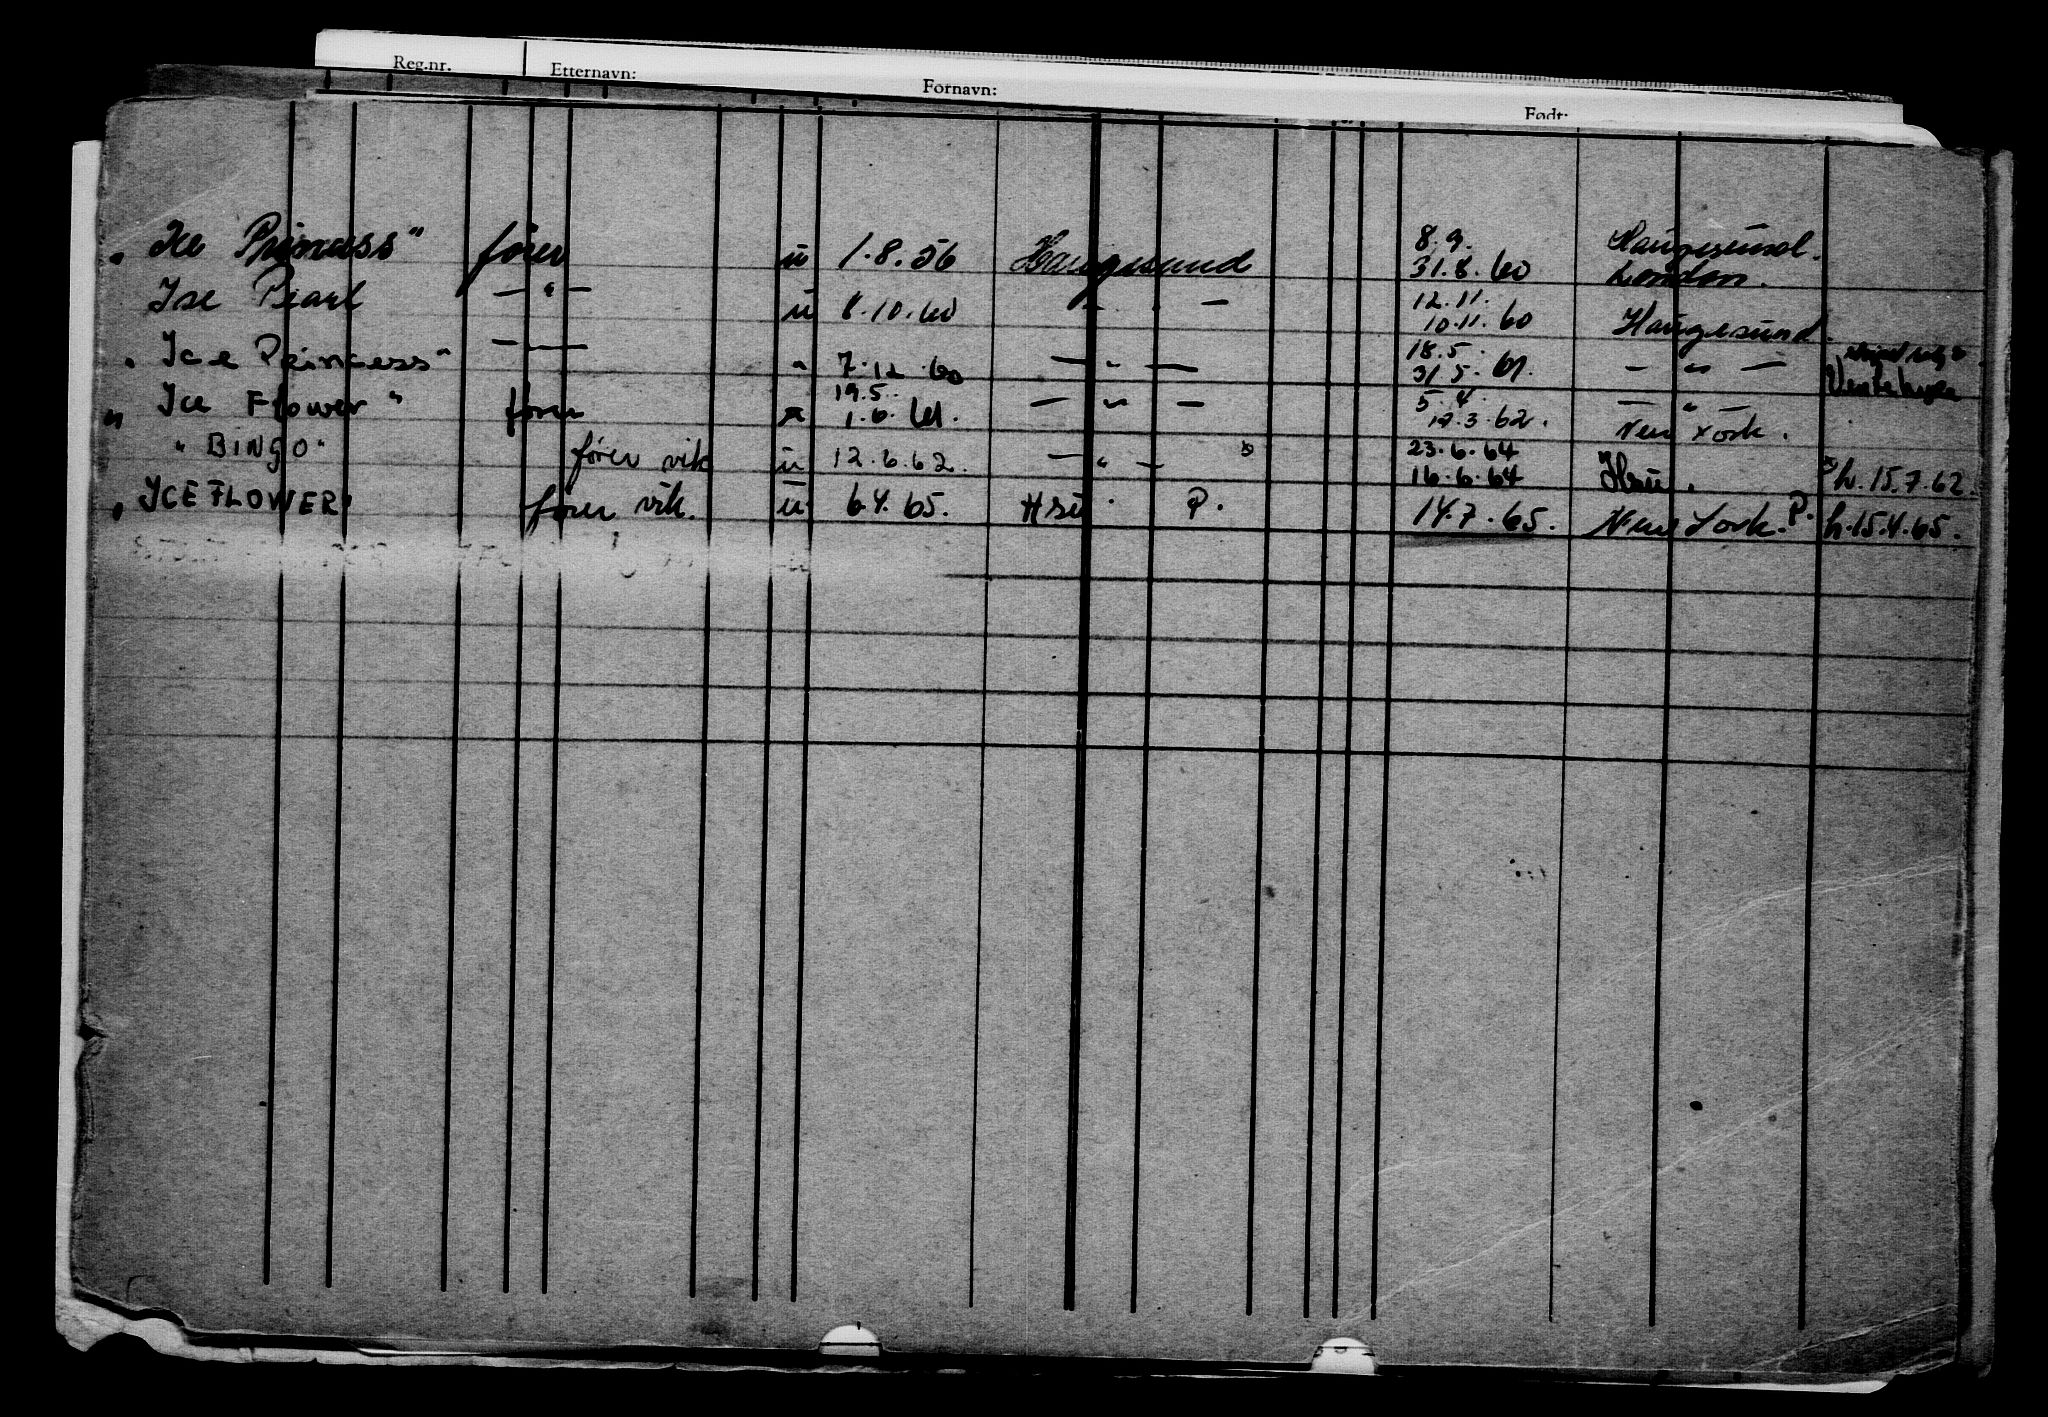 Reg.nr. Etternavn: Fornavn: Født:
„ Ice Princess" fører u 1.8.56 Haugesund 8.9. Haugesund.
31.8.60 London.
Ise Pearl — " — u 8.10.60 — " — 12.11.
10.11.60 Haugesund.
„ Ice Princess" — — " 7.12.60 — " — 18.5.
31.5.61. — " —
19.5.
„ Ice Flower" fører 1.6.61. — " — 5.4. — " —
12.3.62. New York.
" BINGO" fører vik u 12.6.62. — " — 23.6.64
16.6.64 Hsu. h.15.7.62.
„ ICE FLOWER" fører vik. u 6.4.65. Hsu. P. 14.7.65. New York. P. h.15.4.65.